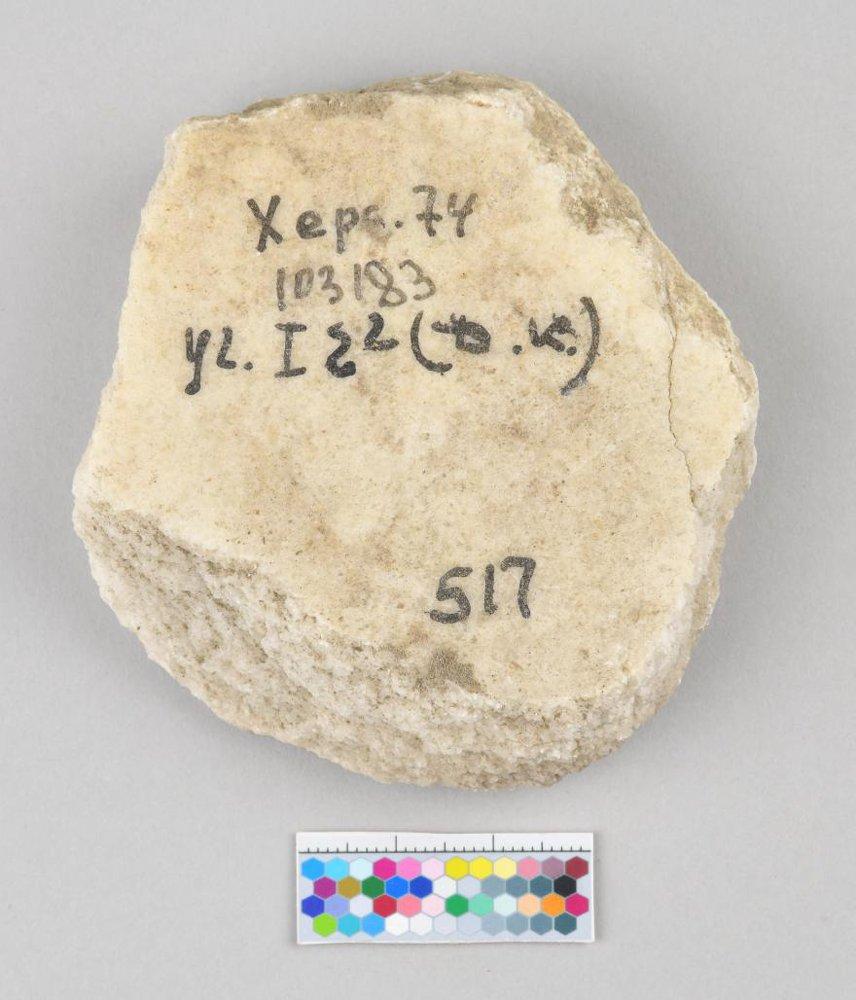 Херс. 74
103183
уг. I
517